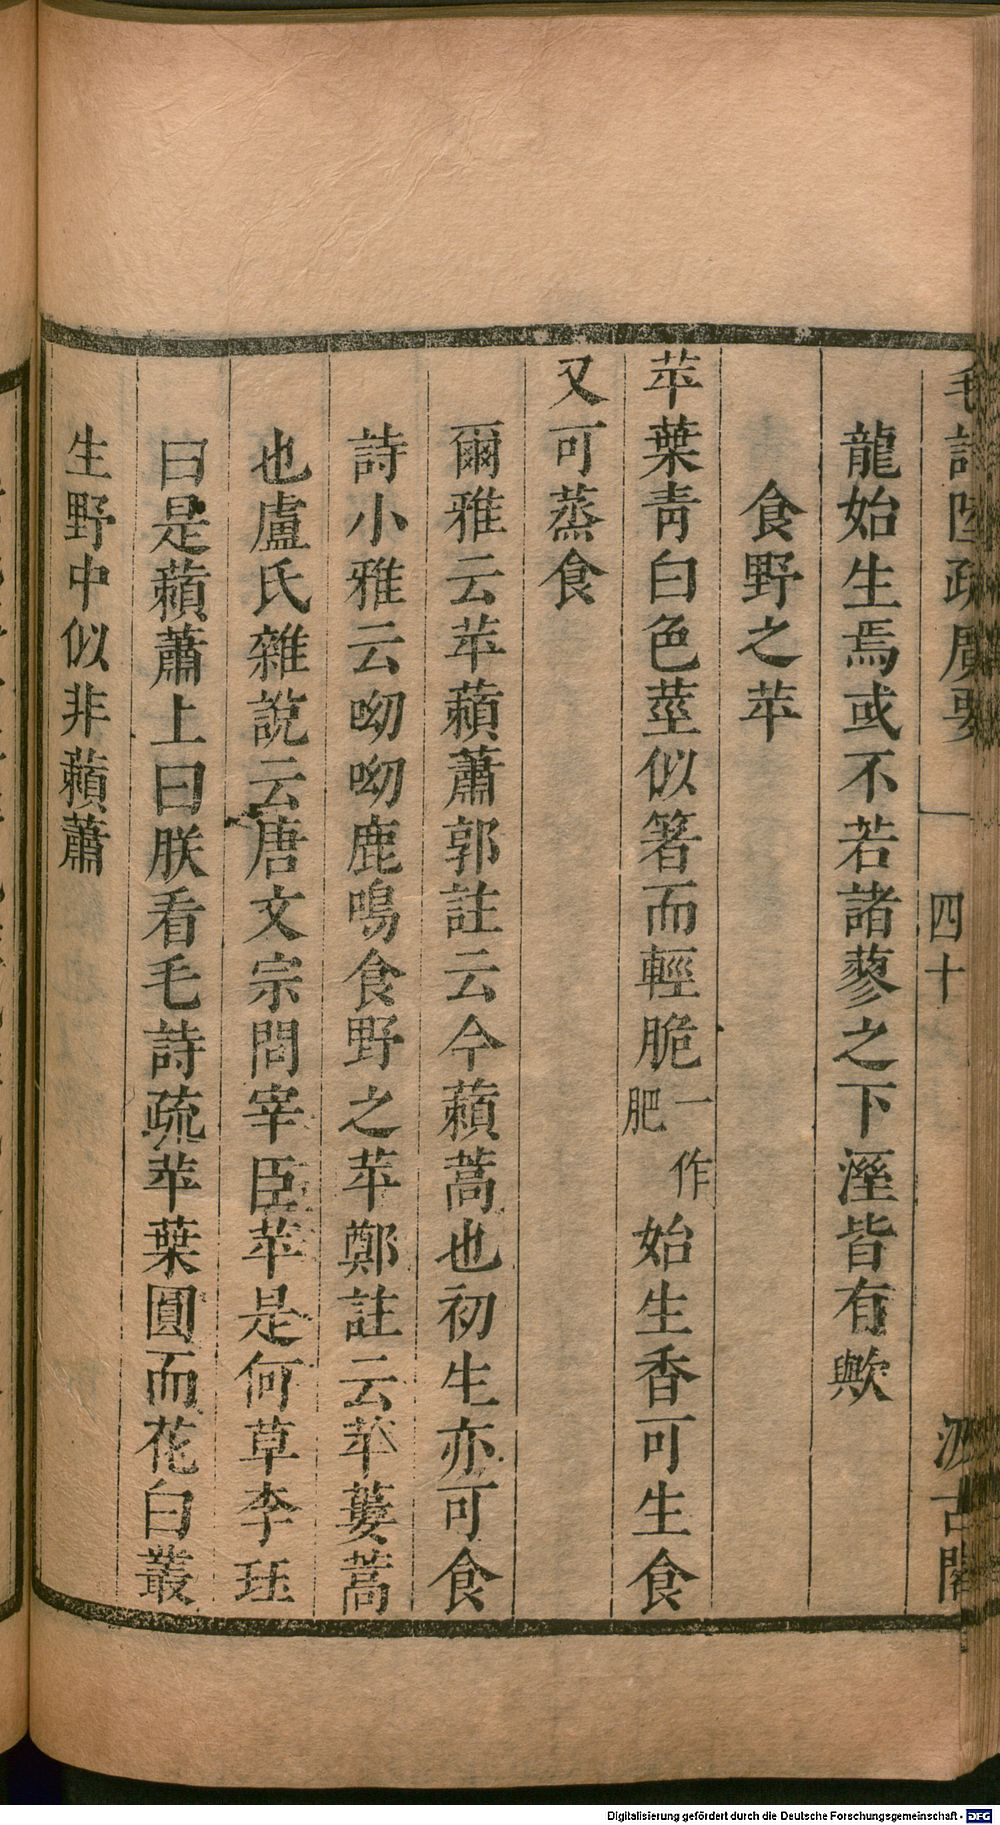 毛詩陸疏廣要 四十 汲古閣
龍始生焉或不若諸蓼之下溼皆有歟
食野之苹
苹葉靑白色莖似箸而輕脆一作肥始生香可生食
又可蒸食
爾雅云苹藾蕭郭註云今藾蒿也初生亦可食
詩小雅云呦呦鹿鳴食野之苹鄭註云苹蔞蒿
也盧氏雜說云唐文宗問宰臣苹是何草李珏
曰是藾蕭上曰朕看毛詩疏苹葉圓而花白叢
生野中似非藾蕭
Digitalisierung gefördert durch die Deutsche Forschungsgemeinschaft - DFG